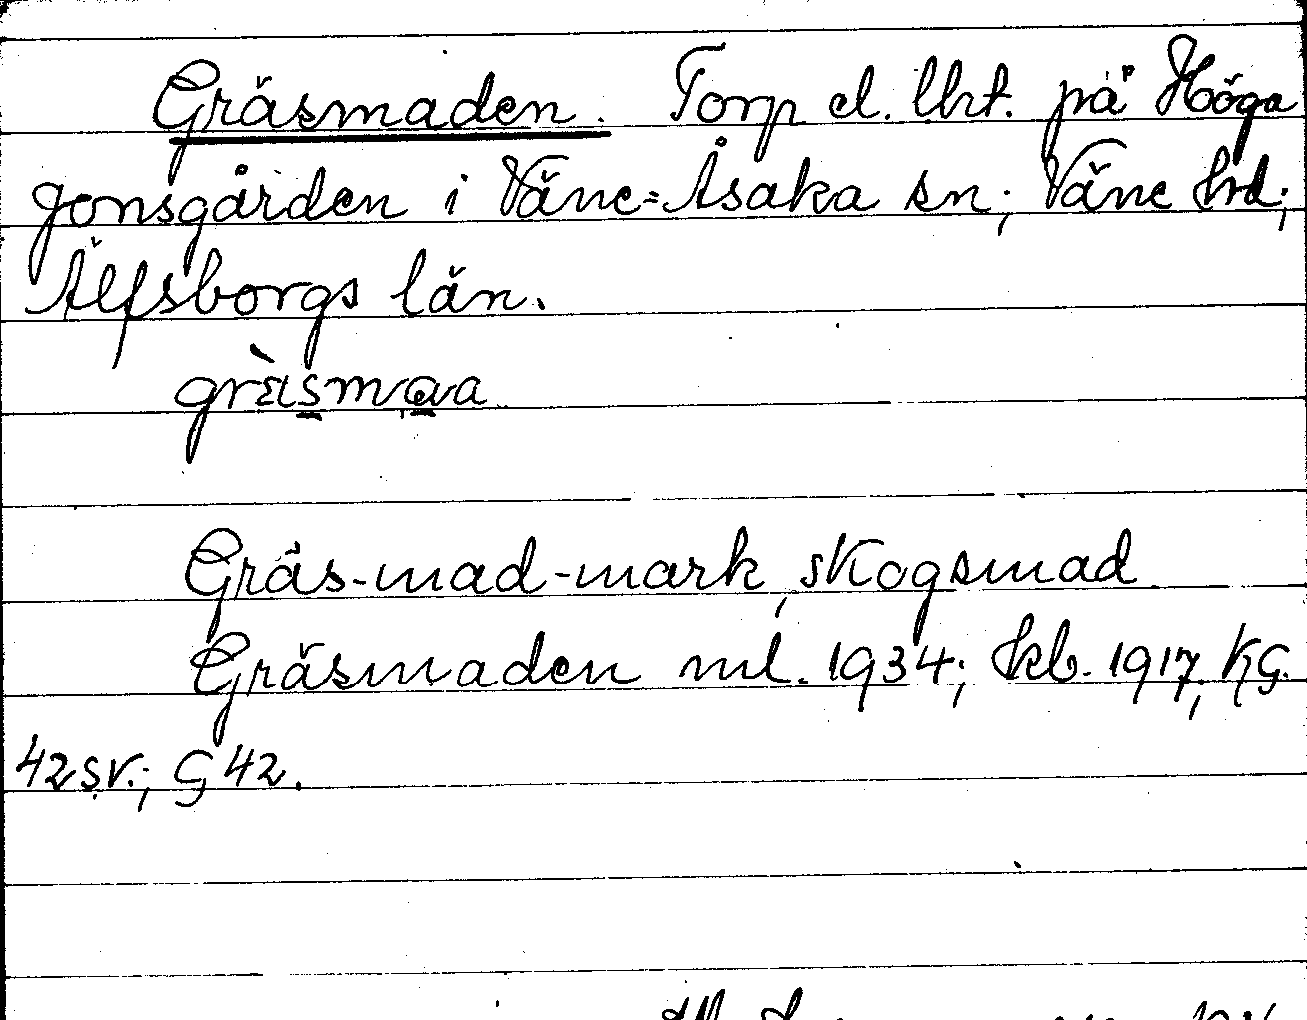 Gräsmaden. Torp el. lht. på Höga
gonsgården i Väne=Åsaka sn; Väne hrd;
Älfsborgs län.
Gräs-mad-mark, skogsmad
Gräsmaden ml. 1934; kb. 1917, KG.
42 sv.; G 42.